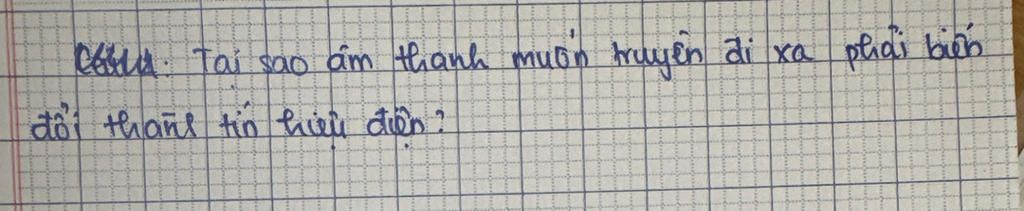 Tại sao âm thanh muốn truyền đi xa phải biến
đổi thành tín hiệu điện?